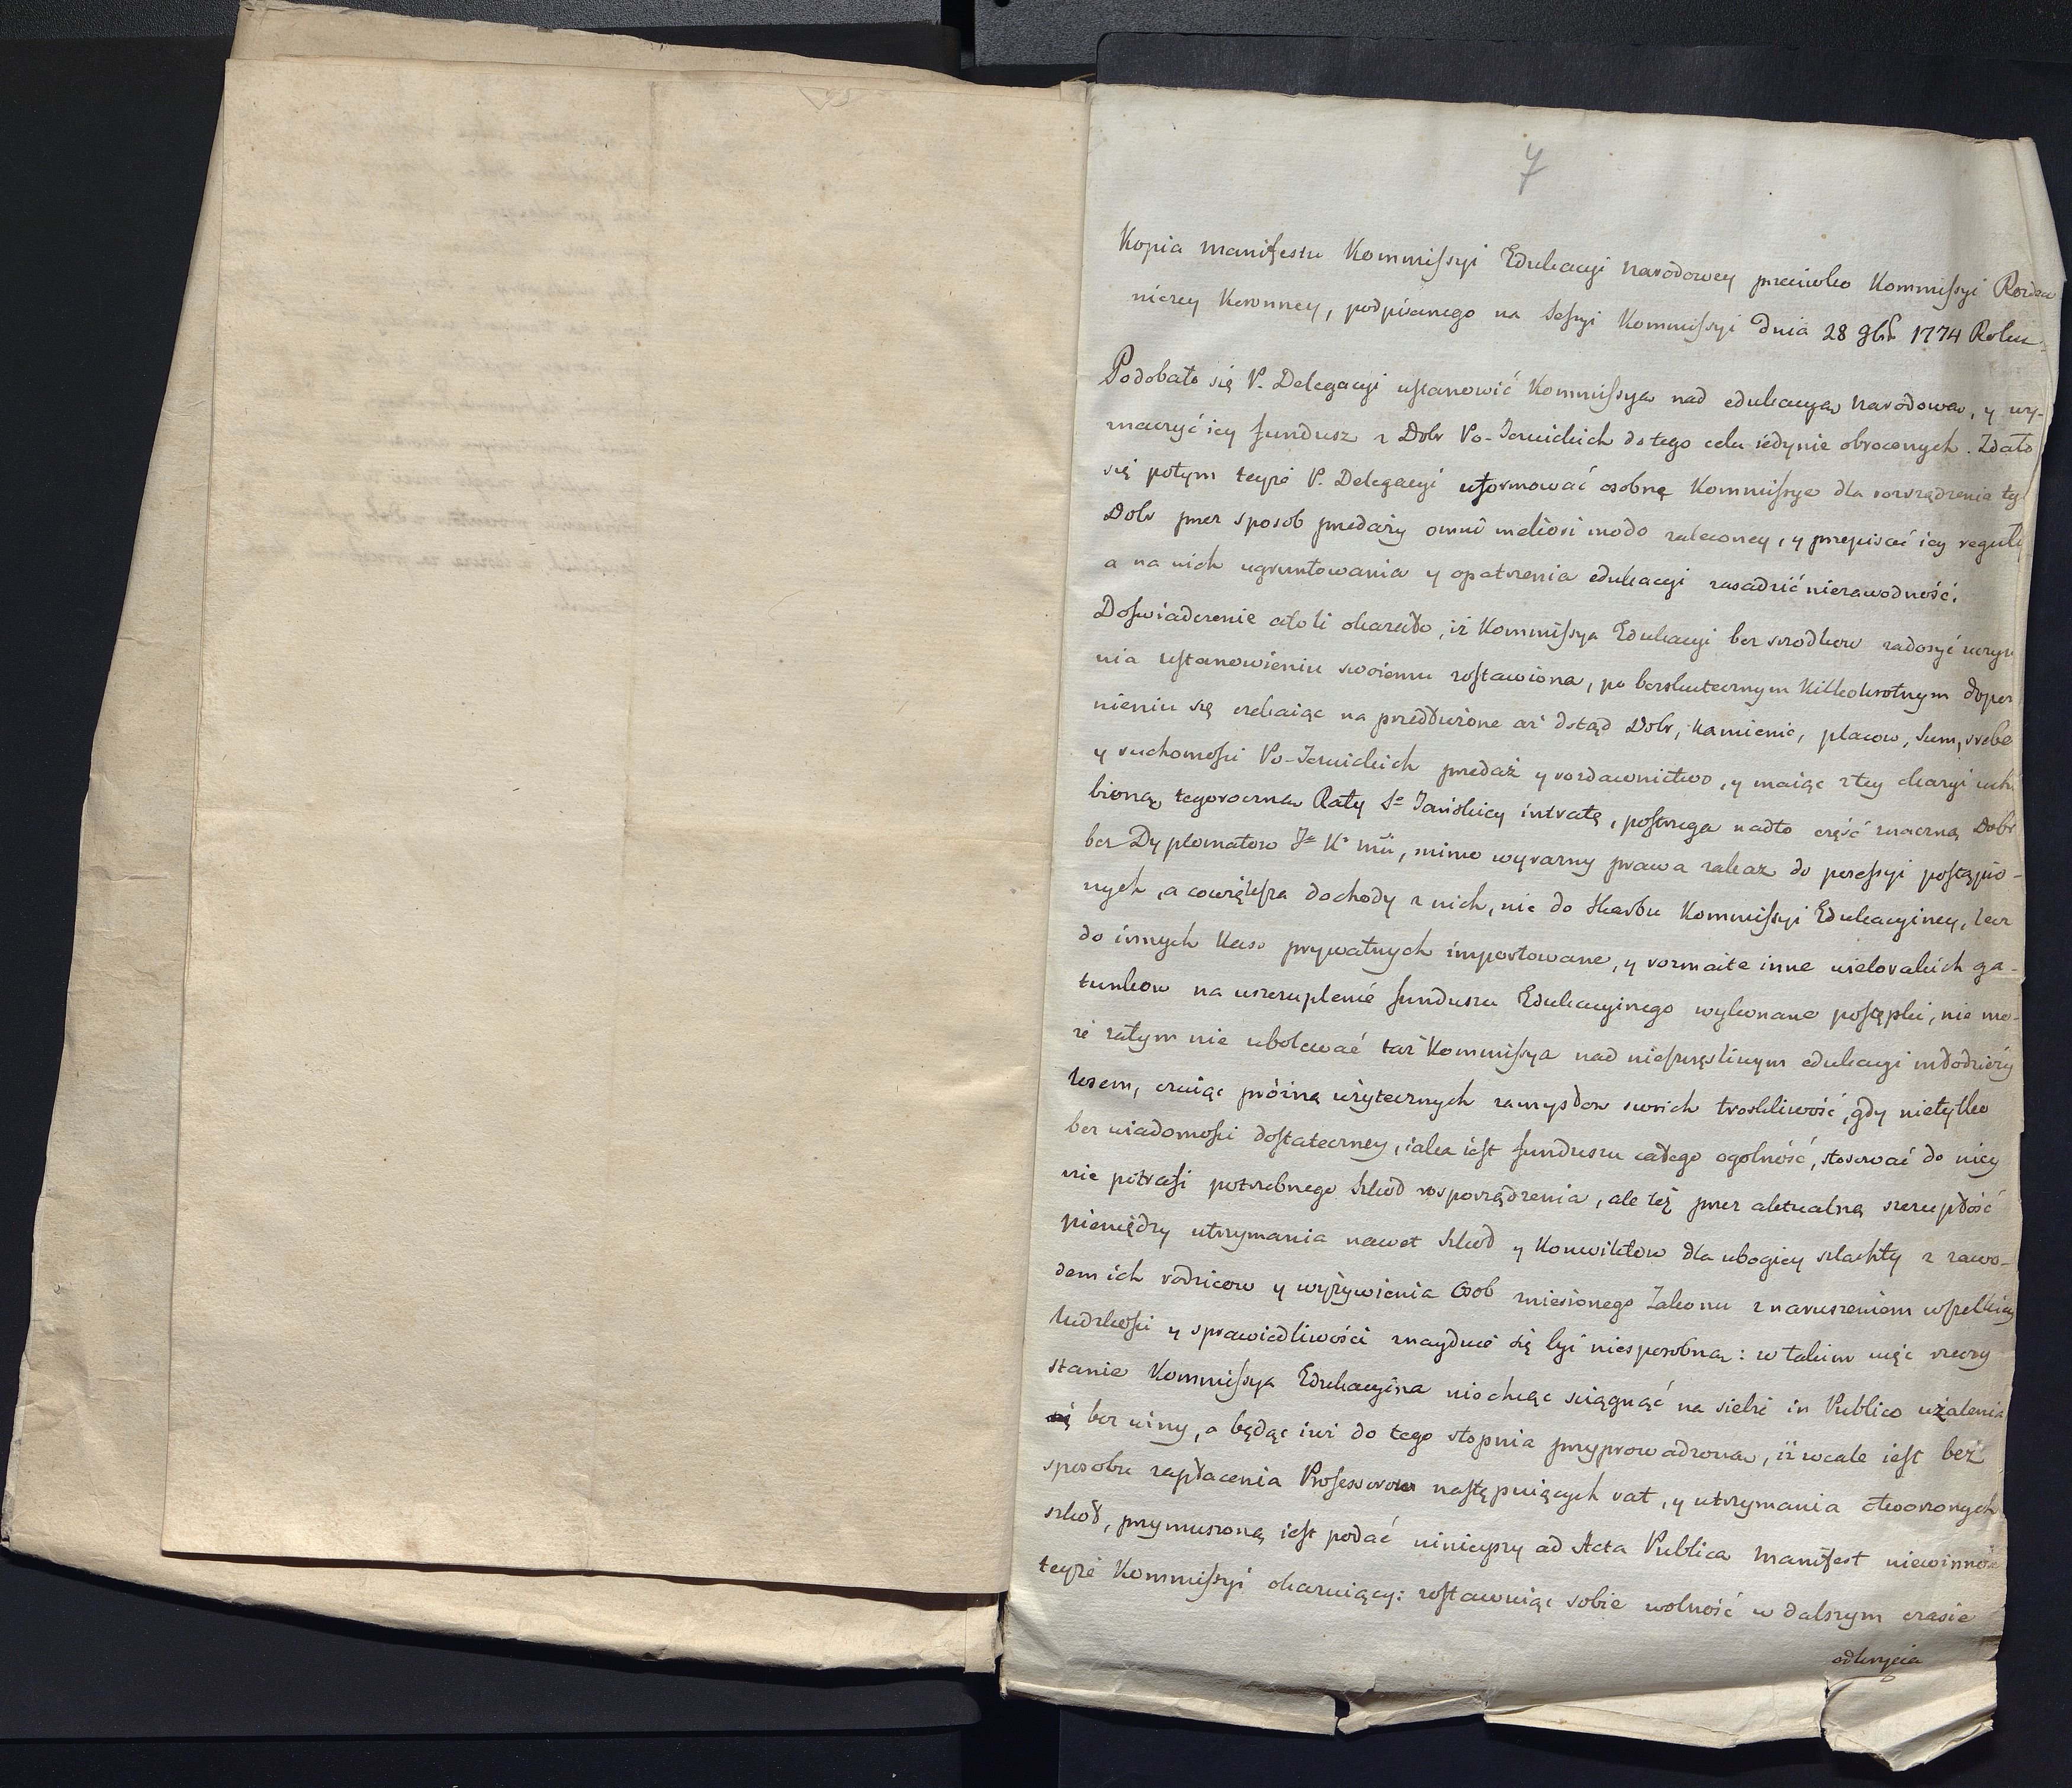 7
Kopia Manifestu Kommissyi Edukacyi Narodowey przeciwko Kommissyi Rozdaw
niczey Koronney, podpisanego na Sessyi Kommissyi Dnia 28 9br 1774 Roku.
Podobało się P. Delegacyi ustanowić Kommissyą nad edukacyą Narodową, y wy-
znaczyć iey fundusz z Dobr Po-Jezuickich do tego celu iedynie obroconych. Zdało
się potym teyże P. Delegacyi uformować osobną Kommissye dla rozrządzenia ty
Dobr przez sposob przedaży omni meliori modo zaleconey, y przepisać iey reguły
a na nich ugruntowania y opatrzenia edukacyi zasadzić niezawodność.
Doświadczenie atoli okazało, iż Kommissya Edukacyi bez srodkow zadosyć uczyn
nia ustanowieniu swoiemu zostawiona, po bezskutecznym kilkokrotnym dopom
nieniu się czekaiąc na przedłużone aż dotąd Dobr, Kamienic, placow, Sum, sreber
y ruchomości Po-Jezuickich przedaż y rozdawnictwo, y maiąc z tey okazyi uchy
bioną tegoroczną Raty S° Jańskiey intratę, postrzega nadto część znaczną Dobr
bez Dyplomatow J° K° Mci, mimo wyrazny prawa zakaz do possessyi postąpio-
nych, a cowiększa dochody z nich, nie do Skarbu Kommissyi Edukacyiney, lecz
do innych Kass prywatnych importowane, y rozmaite inne wielorakich ga-
tunkow na uszczuplenie funduszu Edukacyinego wykonane postępki, nie mo-
że zatym nie ubolewać taż Kommissya nad nieszczęśliwym edukacyi młodzieży
losem, czuiąc próżną użytecznych zamysłow swoich troskliwość, gdy nietylko
bez wiadomości dostateczney, iaka iest funduszu całego ogolność, stosować do niey
nie potrafi potrzebnego szkoł rozporządzenia, ale też przez aktualną szczupłość
pieniędzy utrzymania nawet szkoł y Konwiktow dla ubogiey szlachty z zawo-
dem ich rodzicow y wyżywienia Osob zniesionego Zakonu z naruszeniem wszelkiey
ludzkości y sprawiedliwości znayduie się byc niesposobną: w takim więc rzeczy
stanie Kommissya Edukacyina niechcąc sciągnąć na siebie in Publico użalenia
bez winy, a będąc iuż do tego stopnia przyprowadzona, iż wcale iest bez
sposobu zapłacenia Professorow następuiących rat, y utrzymania otworzonych
szkoł, przymuszoną iest podać ninieyszy ad Acta Publica Manifest niewinność
teyże Kommissyi okazuiący: zostawuiąc sobie wolność w dalszym czasie
odkrycia